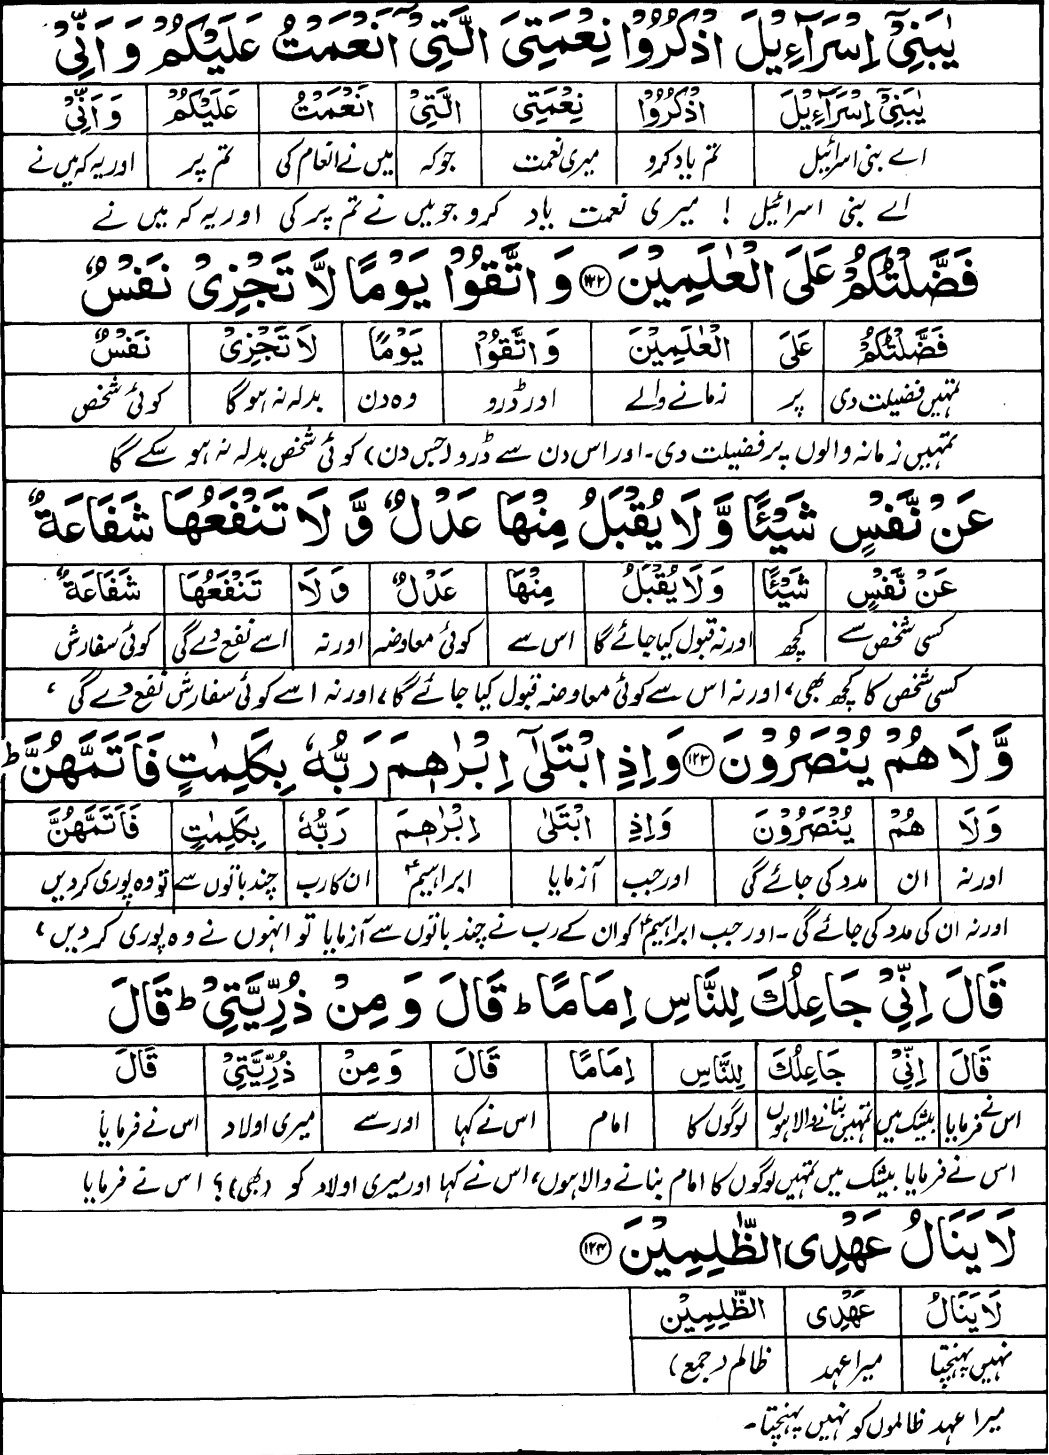 يٰبَنِيْٓ اِسْرَآءِيْلَ اذْكُرُوْا نِعْمَتِيَ الَّتِيْٓ اَنْعَمْتُ عَلَيْكُمْ وَ اَنِّيْ
يٰبَنِيْٓ اِسْرَآءِيْلَ اذْكُرُوْا نِعْمَتِيَ الَّتِيْٓ اَنْعَمْتُ عَلَيْكُمْ وَ اَنِّيْ
اے بنی اسرائیل تم یاد کرو میری نعمت جو کہ میں نے انعام کی تم پر اور یہ کہ میں نے
اے بنی اسرائیل ! میری نعمت یاد کرو جو میں نے تم پر کی اور یہ کہ میں نے
فَضَّلْتُكُمْ عَلَى الْعٰلَمِيْنَ ۝۱۲۲ وَ اتَّقُوْا يَوْمًا لَّا تَجْزِيْ نَفْسٌ
فَضَّلْتُكُمْ عَلَى الْعٰلَمِيْنَ وَ اتَّقُوْا يَوْمًا لَا تَجْزِيْ نَفْسٌ
تمہیں فضیلت دی پر زمانے والے اور ڈرو وہ دن بدلہ نہ ہوگا کوئی شخص
تمہیں زمانہ والوں پر فضیلت دی۔ اور اس دن سے ڈرو (جس دن) کوئی شخص بدلہ نہ ہو سکے گا
عَنْ نَّفْسٍ شَيْئًا وَّ لَا يُقْبَلُ مِنْهَا عَدْلٌ وَّ لَا تَنْفَعُهَا شَفَاعَةٌ
عَنْ نَّفْسٍ شَيْئًا وَ لَا يُقْبَلُ مِنْهَا عَدْلٌ وَ لَا تَنْفَعُهَا شَفَاعَةٌ
کسی شخص سے کچھ اور نہ قبول کیا جائے گا اس سے کوئی معاوضہ اور نہ اسے نفع دے گی کوئی سفارش
کسی شخص کا کچھ بھی، اور نہ اس سے کوئی معاوضہ قبول کیا جائے گا، اور نہ اسے کوئی سفارش نفع دے گی،
وَّ لَا هُمْ يُنْصَرُوْنَ ۝۱۲۳ وَ اِذِ ابْتَلٰٓى اِبْرٰهٖمَ رَبُّهٗ بِكَلِمٰتٍ فَاَتَمَّهُنَّ ؕ
وَ لَا هُمْ يُنْصَرُوْنَ وَ اِذِ ابْتَلٰى اِبْرٰهٖمَ رَبُّهٗ بِكَلِمٰتٍ فَاَتَمَّهُنَّ
اور نہ ان مدد کی جائے گی اور جب آزمایا ابراہیمؑ ان کا رب چند باتوں سے تو وہ پوری کردیں
اور نہ ان کی مدد کی جائے گی۔ اور جب ابراہیمؑ کو ان کے رب نے چند باتوں سے آزمایا تو انہوں نے وہ پوری کردیں،
قَالَ اِنِّيْ جَاعِلُكَ لِلنَّاسِ اِمَامًا ؕ قَالَ وَ مِنْ ذُرِّيَّتِيْ ؕ قَالَ
قَالَ اِنِّيْ جَاعِلُكَ لِلنَّاسِ اِمَامًا قَالَ وَ مِنْ ذُرِّيَّتِيْ قَالَ
اس نے فرمایا بیشک میں تمہیں بنانے والا ہوں لوگوں کا امام اس نے کہا اور سے میری اولاد اس نے فرمایا
اس نے فرمایا بیشک میں تمہیں لوگوں کا امام بنانے والا ہوں، اس نے کہا اور میری اولاد کو (بھی)؟ اس نے فرمایا
لَا يَنَالُ عَهْدِي الظّٰلِمِيْنَ ۝۱۲۴
لَا يَنَالُ عَهْدِي الظّٰلِمِيْنَ
نہیں پہنچتا میرا عہد ظالم (جمع)
میرا عہد ظالموں کو نہیں پہنچتا۔